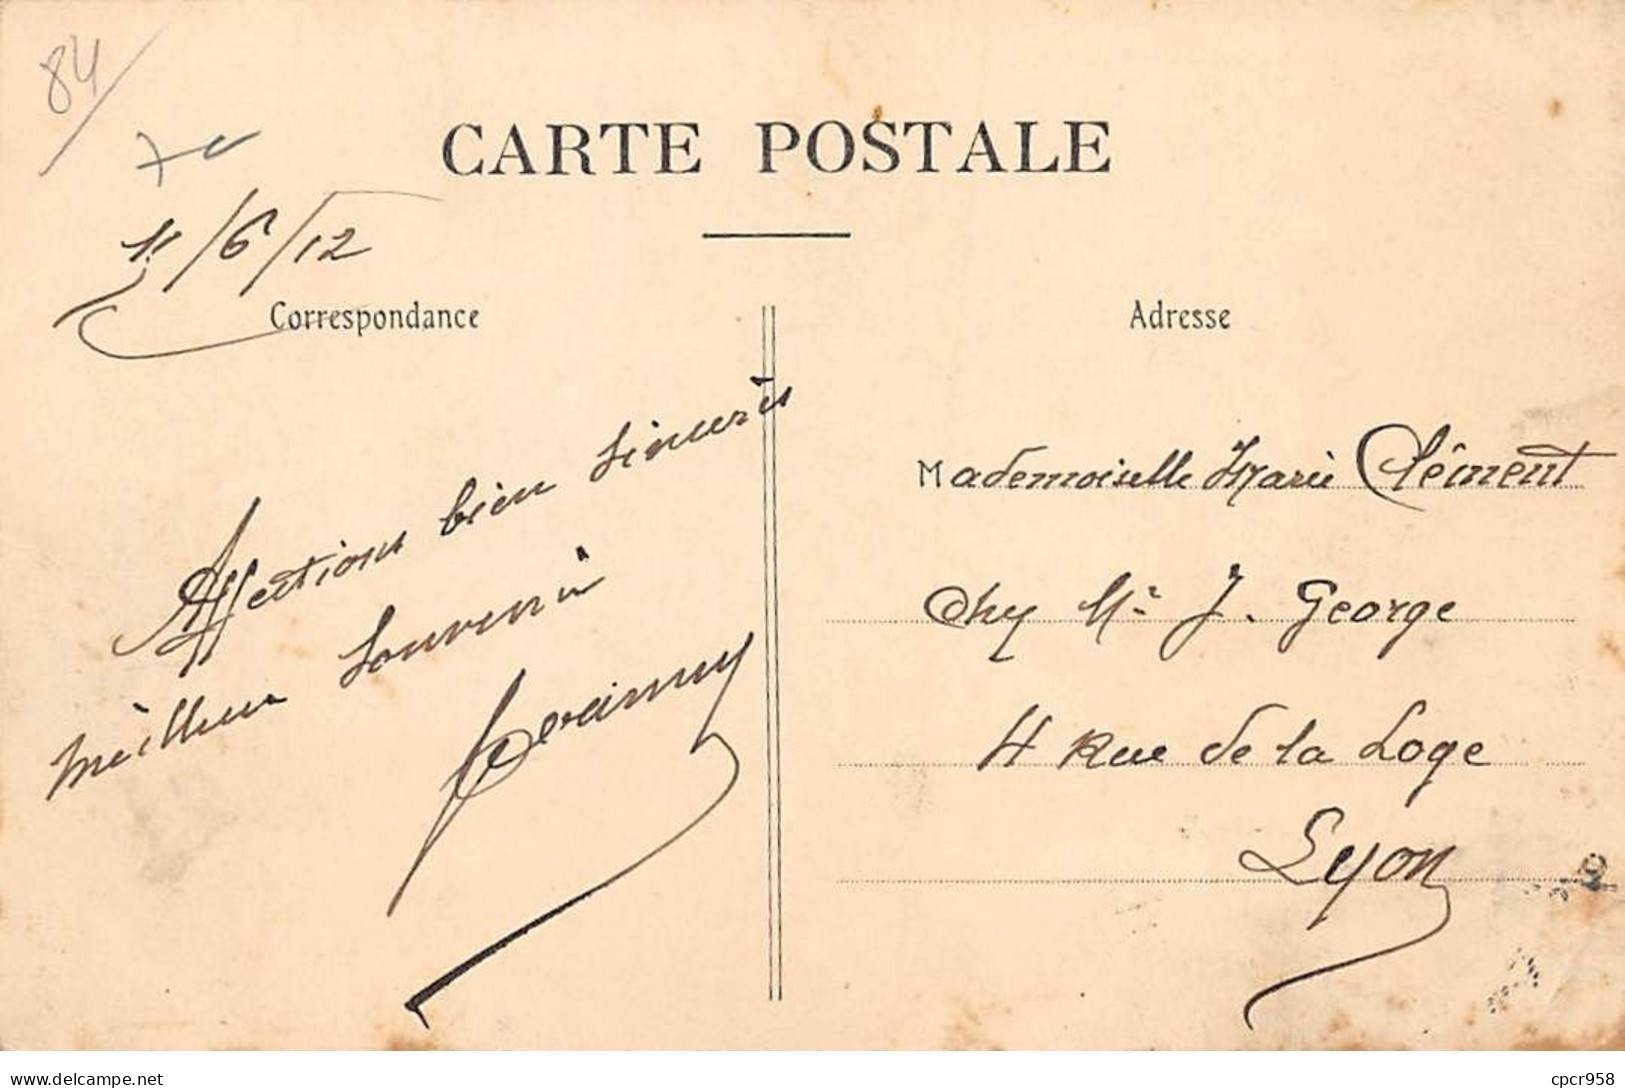 84
CARTE POSTALE
/6/12
Correspondance
Adresse
Affections bien sincères
meilleur souvenir
Mademoiselle Marie Clément
Chez Mr J. George
4 Rue de la Loge
Lyon
delcampe.net
cpcr958